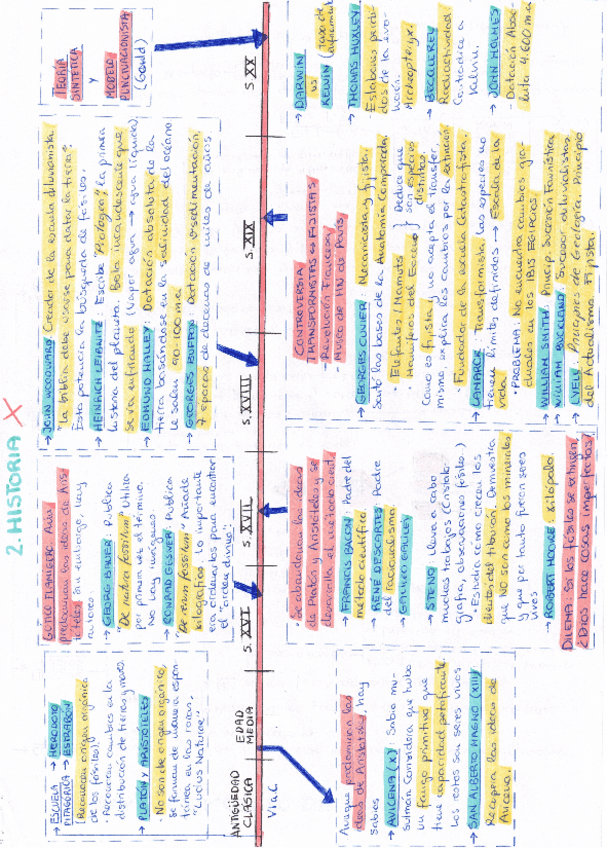 2. HISTORIA X
ESCUELA → HERODOTO
PITAGÓRICA → ESTRABÓN
(Reconocen origen orgánico
de los fósiles).
· Reconocen cambios en la
distribución de tierras y mares.
→ PLATÓN Y ARISTÓTELES
· No son de origen orgánico,
se forman de manera espon-
tánea en las rocas,
"Lusus Naturae"
GÓTICO FLAMÍGERO: Aún
predominan las ideas de Aris-
tóteles, sin embargo hay
autores.
→ GEORG BAUER: Publica
"De natura fossilium". Utiliza
por primera vez el término.
No hay ninguno
→ CONRAD GESNER: Publica
"De rerum fossilium". Añade
xilografías. Lo importante
era ordenarlos para encontrar
el "orden divino".
→ JOHN WOODWARD: Creador de la escuela diluvianista.
"La biblia debe usarse para datar la tierra".
Esto potencia la búsqueda de fósiles.
→ HEINRICH LEIBNITZ: Escribe "Protogea", la primera
historia del planeta. Bola incandescente que
se va enfriando (Vapor agua → agua líquida).
→ EDMUND HALLEY: Datación absoluta de la
tierra basándose en la salinidad del océano
le salen 90-100 m.a.
→ GEORGES BUFFON: Datación por sedimentación
7 épocas de decenas de miles de años.
TEORÍA
SINTÉTICA
Y
MODELO
PUNCTUACIONISTA
(Gould)
ANTIGÜEDAD
CLÁSICA
EDAD
MEDIA
S. XVI
S. XVII
S. XVIII
S. XIX
S. XX
V i a.C.
Aunque predominan las
ideas de Aristóteles, hay
sabios
→ AVICENA (X): Sabio mu-
sulmán. Considera que hubo
un fango primitivo que
tiene capacidad petrificante.
Los restos son seres vivos
→ SAN ALBERTO MAGNO (XIII)
Recupera las ideas de
Avicena.
· Se abandonan las ideas
de Platón y Aristóteles y se
desarrolla el método cient.
→ FRANCIS BACON: Padre del
método científico.
→ RENÉ DESCARTES: Padre
del racionalismo.
→ GALILEO GALILEY
→ STENO: lleva a cabo
muchos trabajos (Cristalo-
grafía, observaciones fósiles)
· Estudia como crecen los
dientes del tiburón. Demuestra
que NO son como los minerales
y que por tanto fueron seres
vivos
→ ROBERT HOOKE: xilópalo.
DILEMA: Si los fósiles se extinguen,
¿Dios hace cosas imperfectas?
CONTROVERSIA
TRANSFORMISTAS ↔ FIJISTAS
- Revolución Francesa
- Museo de HN de París
→ GEORGES CUVIER: Mecanicista y fijista.
Sentó las bases de la Anatomía Comparada.
· Elefantes / Mamuts } Deduce que
· Mamíferos del Eoceno } son especies
distintas.
Como es fijista y no acepta el transfor-
mismo, explica los cambios por la extinción
· Fundador de la escuela Catastrofista.
→ LAMARCK: Transformista, las especies no
tienen límites definidos → Escala de la
vida.
· PROBLEMA: No encuentra cambios gra-
duales en los IBIS EGIPCIOS
→ WILLIAM SMITH: Princip. Sucesión Faunística
→ WILLIAM BUCKLAND: Sucesor diluvialistas
→ LYELL: Principios de Geología. Principio
del Actualismo. Fijista.
→ DARWIN
vs
KELVIN
→ THOMAS HUXLEY:
Eslabones perdi-
dos de la evo-
lución.
→ BECQUEREL
Radioactividad
Contradice a
Kelvin.
→ JOHN HOLMES
- Datación Abso-
luta 4.600 m.a